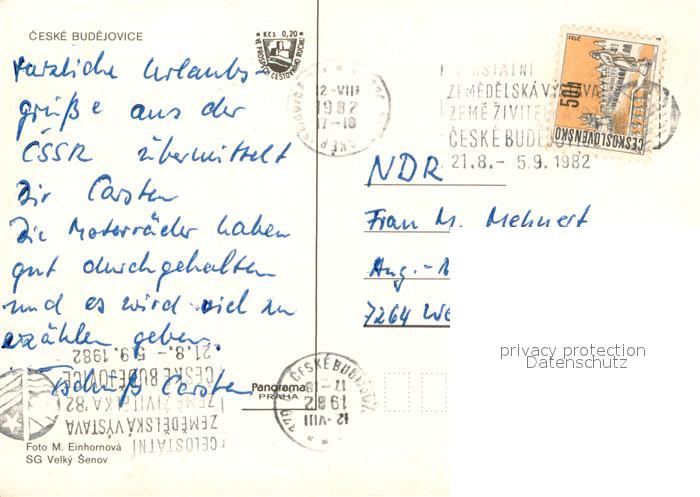 ČESKÉ BUDĚJOVICE
Kčs 0,20
VE PROSPĚCH CESTOVNÍHO RUCHU
Herzliche Urlaubs-
grüße aus der
ČSSR übermittelt
Dir Carsten
Die Motorräder haben
gut durchgehalten
und es wird viel zu
erzählen geben.
Tschüß Carsten
12-VIII
1982
17-18
CELOSTATNI
ZEMĚDĚLSKÁ VÝSTAVA
ZEMĚ ŽIVITEL
ČESKÉ BUDĚJOV
21.8.- 5.9.1982
TELČ
50h
ČESKOSLOVENSKO
NDR
Frau M. Mehnert
Aug.-
7264 We
privacy protection
Datenschutz
21.8. - 5.9.1982
ČESKÉ BUDĚJOVICE
ZEMĚ ŽIVITELKA '82
ZEMĚDĚLSKÁ VÝSTAVA
CELOSTATNI
ČESKÉ BUDĚJOV
17-18
1982
12-VIII
Panorama
PRAHA
Foto M. Einhornová
SG Velký Šenov